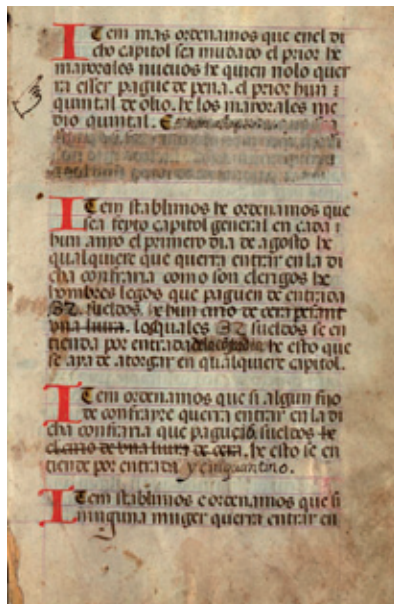 Item mas ordenamos que enel di
cho capitol sea mudado el prior he
mayorales nueuos he quien nolo quer
ra esser pague de pena. el prior hun
quintal de olio. he los mayorales me
dio quintal.
Item stablimos he ordenamos que
sea feyto capitol general en cada
hun anyo el primero dia de agosto he
qualquiere que querra entrar en la di
cha confraria como son clerigos he
hombres legos que paguen de entrada
32. sueldos. he hun cirio de cera pesant
vna liura. los quales 32 sueldos se en
tienda por entrada he esto que
se aya de atorgar en qualquiere capitol.
Item ordenamos que si algun fijo
de confrayre querra entrar en la di
cha confraria que pague 16. sueldos he
el cirio de vna liura de cera. he esto se en
tiende por entrada y en quantino.
Item stablimos e ordenamos que si
ninguna muger querra entrar en